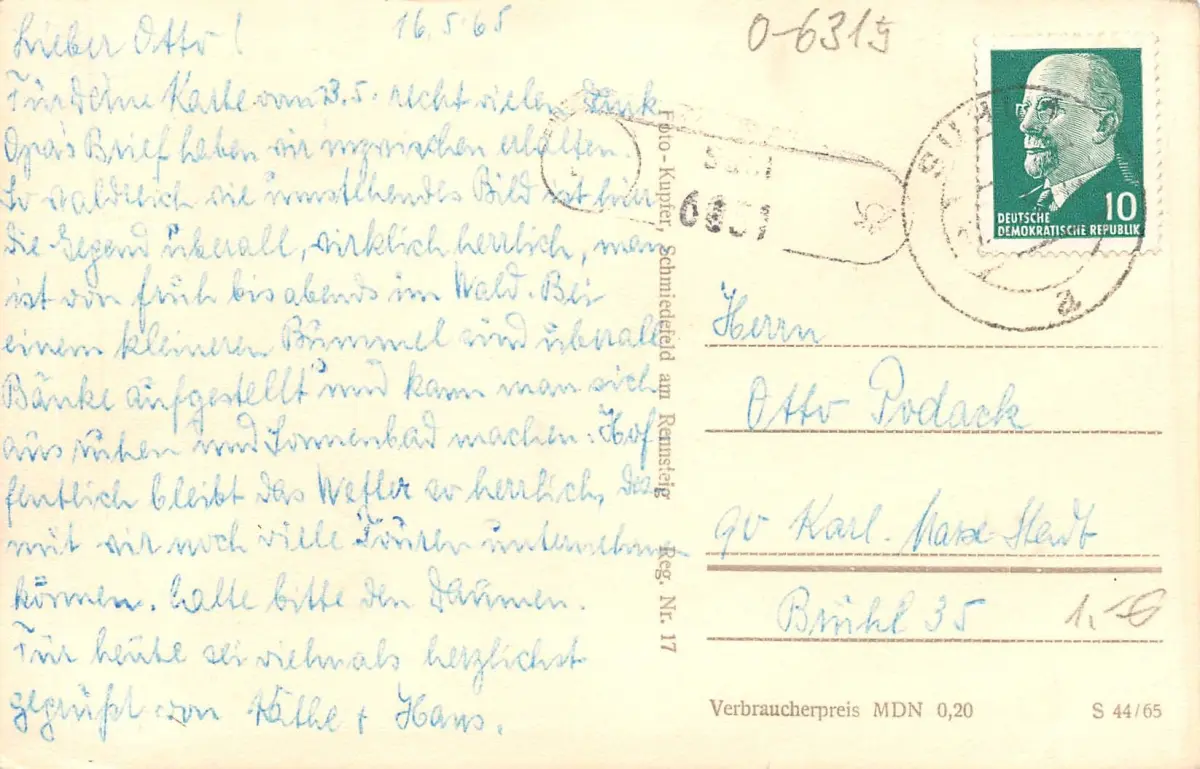 16.5.65
Lieber Otto!
Für deine Karte vom 13.5. recht vielen Dank
Opa's Brief haben wir inzwischen erhalten.
So waldreich wie umstehendes Bild ist hier
die Gegend überall, wirklich herrlich, man
ist von früh bis abends im Wald. Bei
einem kleineren Bummel sind überall
Bänke aufgestellt und kann man sich
ausruhen und Sonnenbad machen. Hof
fentlich bleibt das Wetter so herrlich, da
mit wir noch viele Touren unternehmen
können. Halte bitte den Daumen.
Für heute sei vielmals herzlichst
gegrüßt von Käthe + Hans.
Foto-Kupfer, Schmiedefeld am Rennsteig Reg. Nr. 17
O-6315
SUHL
a
DEUTSCHE 10
DEMOKRATISCHE REPUBLIK
Herrn
Otto Podack
90 Karl-Marx-Stadt
Brühl 35
1,-
Verbraucherpreis MDN 0,20
S 44/65